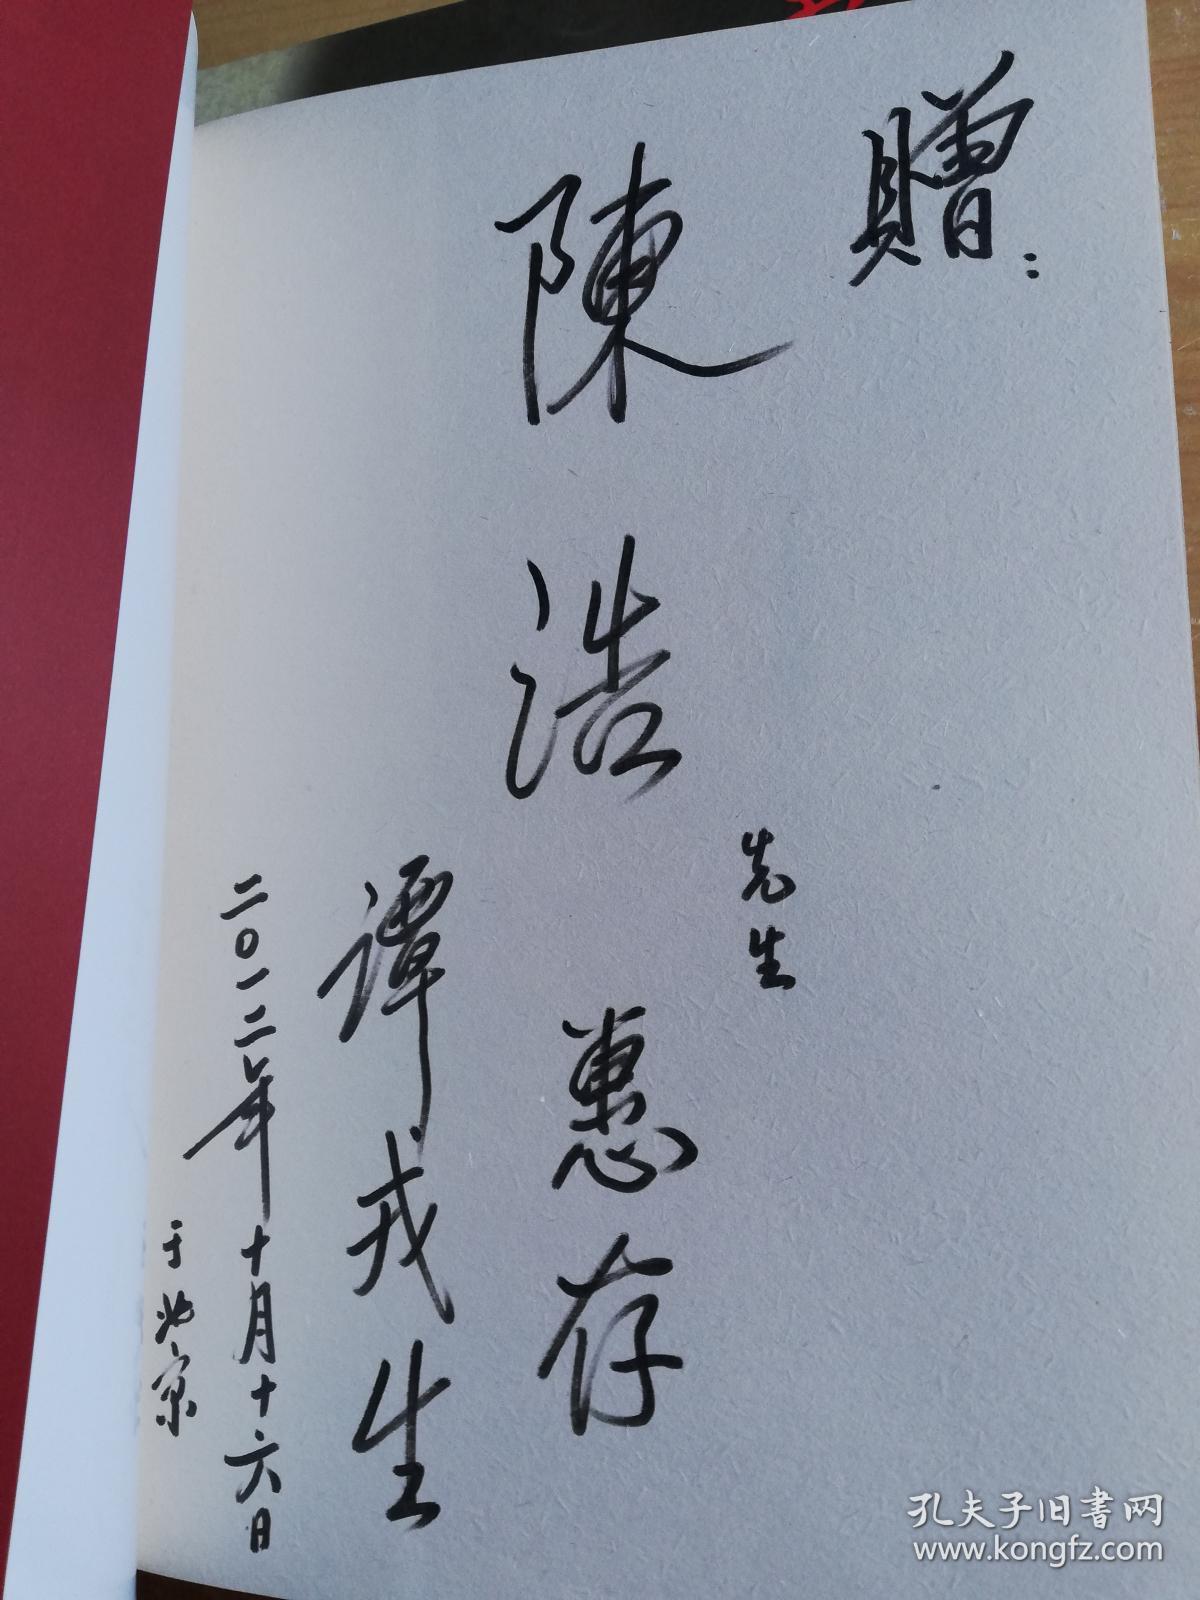 贈：
陳浩先生惠存
谭戎生
二〇一二年十月十六日
于北京
孔夫子旧書网
www.kongfz.com